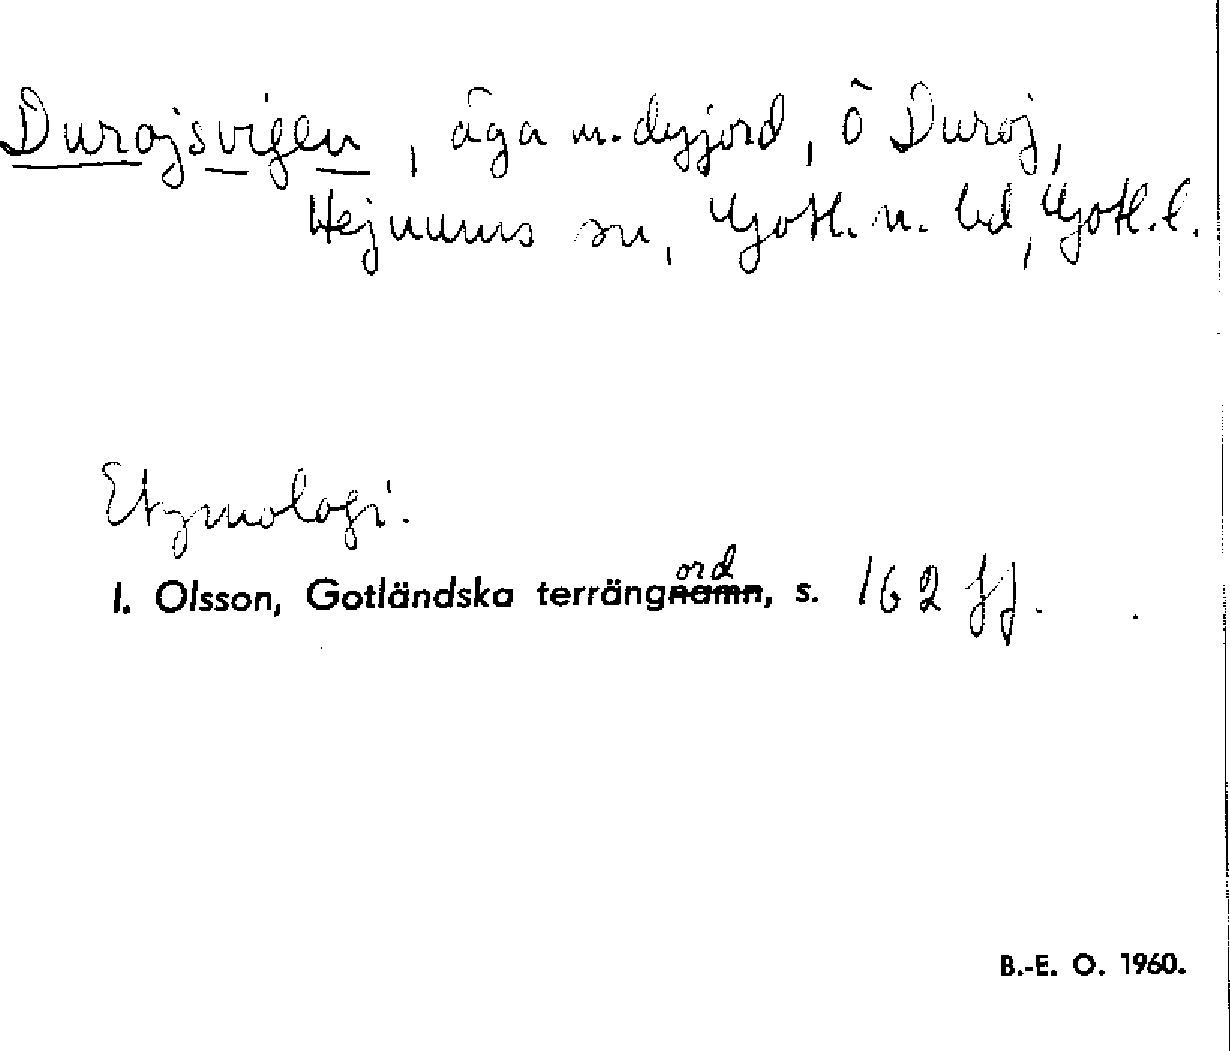 Durojsvigen, äga m. dyjord, ö Duroj,
Hejnums sn, Gotl. n. hd, Gotl. l.
Etymologi.
ord
I. Olsson, Gotländska terrängnamn, s. 162 ff.
B.-E. O. 1960.